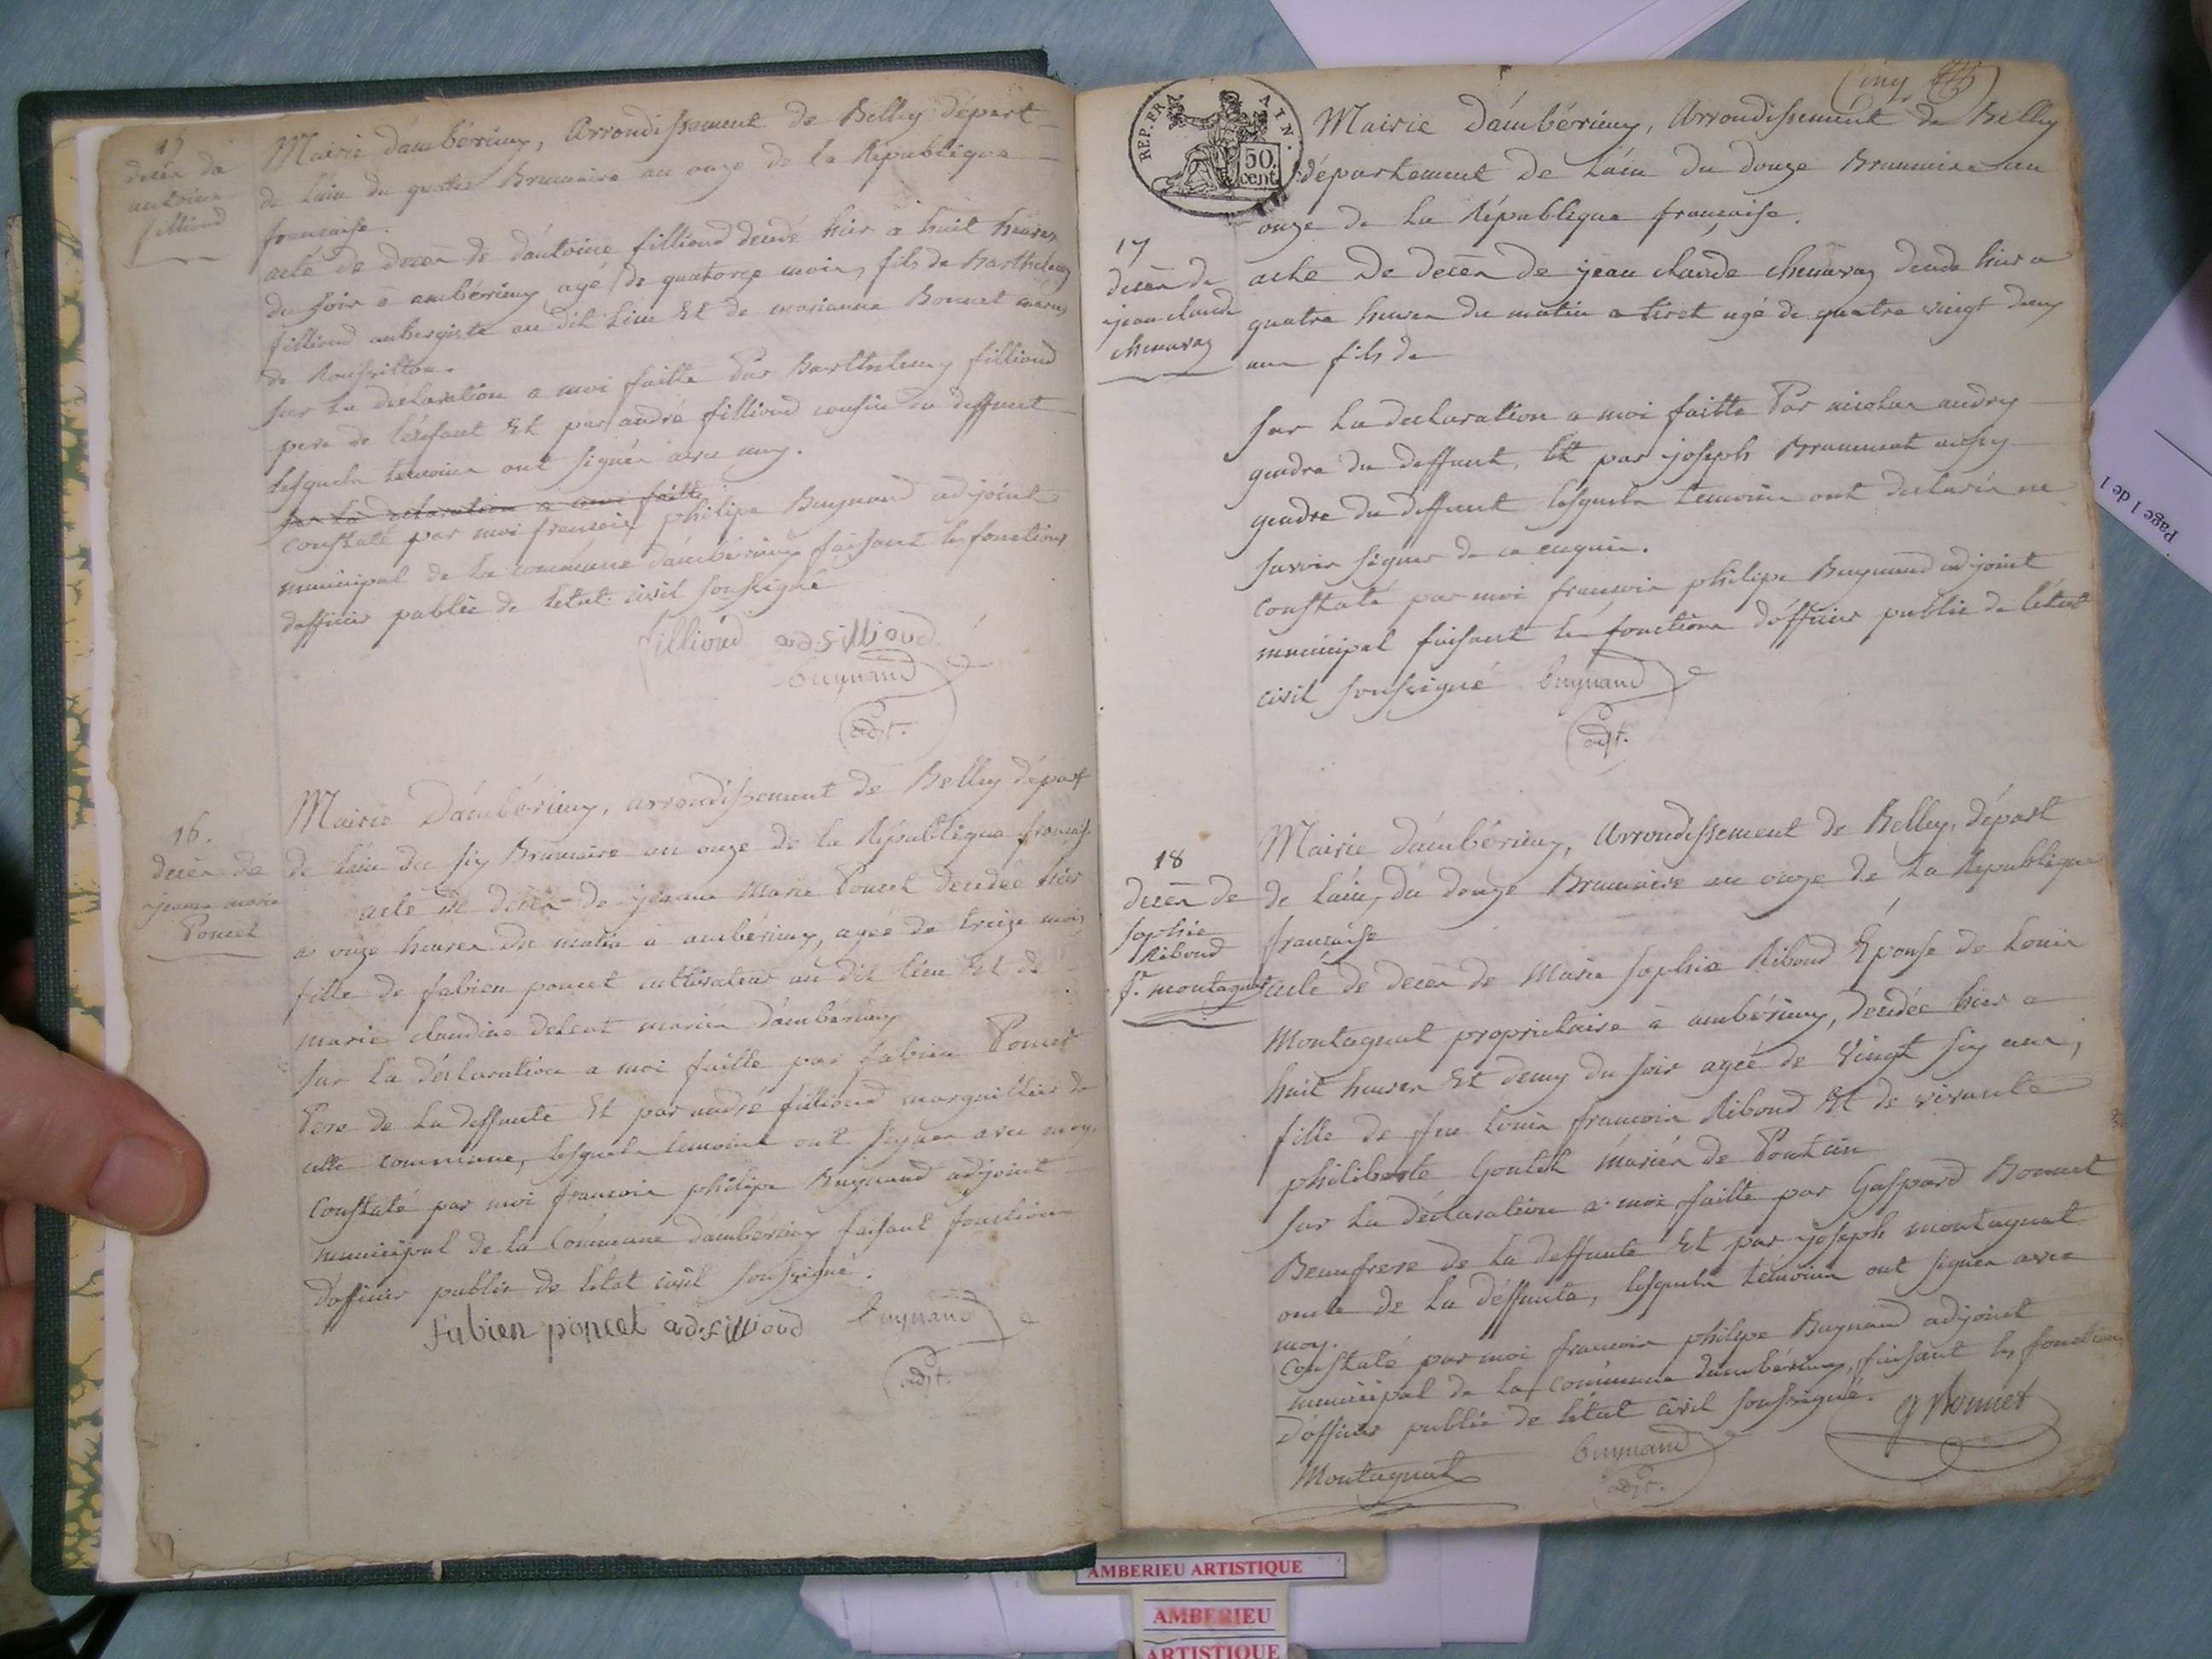 15
decès de
antoine
filliond
Mairie d'ambérieux, Arrondissement de Belley départ
de l'ain du quatre Brumaire an onze de la République
francaise.
acte de decès de d'antoine filliond decedé hier a huit heures
du soir a ambérieux agé de quatorze mois, fils de Barthelemy
filliond aubergiste au dit lieu Et de marianne Bonnet mariés
de Roussillon.
sur la déclaration a moi faitte Par Barthelemy filliond
pere de l'enfant Et par andré filliond cousin du deffunt
lesquels temoins ont signés avec moy.
sur la declaration a moi faitte
constaté par moi francois philipe Buynand adjoint
municipal de la commune d'ambérieux faisant les fonctions
d'officier public de letat civil soussigné
filliond ad filliond
buynand
adjt.
16.
decès de
jeanne marie
Poncet
Mairie D'ambérieux, arrondissement de Belley départ
de l'ain du six Brumaire an onze de la République francaise
acte de decès de jeanne Marie Poncet decedée hier
a onze heures du matin a ambérieux, agée de treize mois
fille de fabien poncet cultivateur au dit lieu Et de
marie claudine mariés d'ambérieux
sur la déclaration a moi faitte par fabien Poncet
Pere de la deffunte Et par andré filliond marguillier de
cette commune, lesquels temoins ont signés avec moy.
Constaté par moi francois philipe Buynand adjoint
municipal de la Commune d'ambérieux faisant fonctions
d'officier public de l'état civil soussigné.
Fabien poncet ad filliond buynand
adjt.
cinq
REP. FRA. AIN.
50
cent
Mairie d'ambérieux, Arrondissement de Belley
département de l'ain du douze Brumaire an
onze de la République française.
17
decès de
jean claude
chenavaz
acte De decès de jean claude chenavaz decedé hier a
quatre heures du matin a tiret agé de quatre vingt deux
ans fils de
sur la declaration a moi faitte Par nicolas audry
gendre du deffunt, Et par joseph Brumment aussy
gendre du deffunt lesquels temoins ont declarés ne
savoir signer de ce enquis.
constaté par moi francois philipe Buynand adjoint
municipal faisant les fonctions d'officier public de létat
civil soussigné buynand
adjt.
18
decès de
sophie
Riboud
fe. montagnat
Mairie d'ambérieux, Arrondissement de Belley, départ
de l'ain, du douze Brumaire an onze de la République
francaise
acte de decès de Marie sophie Riboud Épouse de Louis
Montagnat propriétaire a ambérieux, decedée hier a
huit heures Et demy du soir agée de vingt six ans,
fille de feu louis francois Riboud Et de vivante
philiberte mariés de Pontain
sur la déclaration a moi faitte par Gaspard Bonnet
Beaufrere de la deffunte Et par joseph montagnat
oncle de la deffunte, lesquels témoins ont signés avec
moy.
constaté par moi francois philipe Buynand adjoint
municipal de la commune d'ambérieux, faisant les fonctions
d'officier public de létat civil soussigné. g Bonnet
Montagnat buynand
adjt.
Page 1 de 1
AMBERIEU ARTISTIQUE
AMBERIEU
ARTISTIQUE